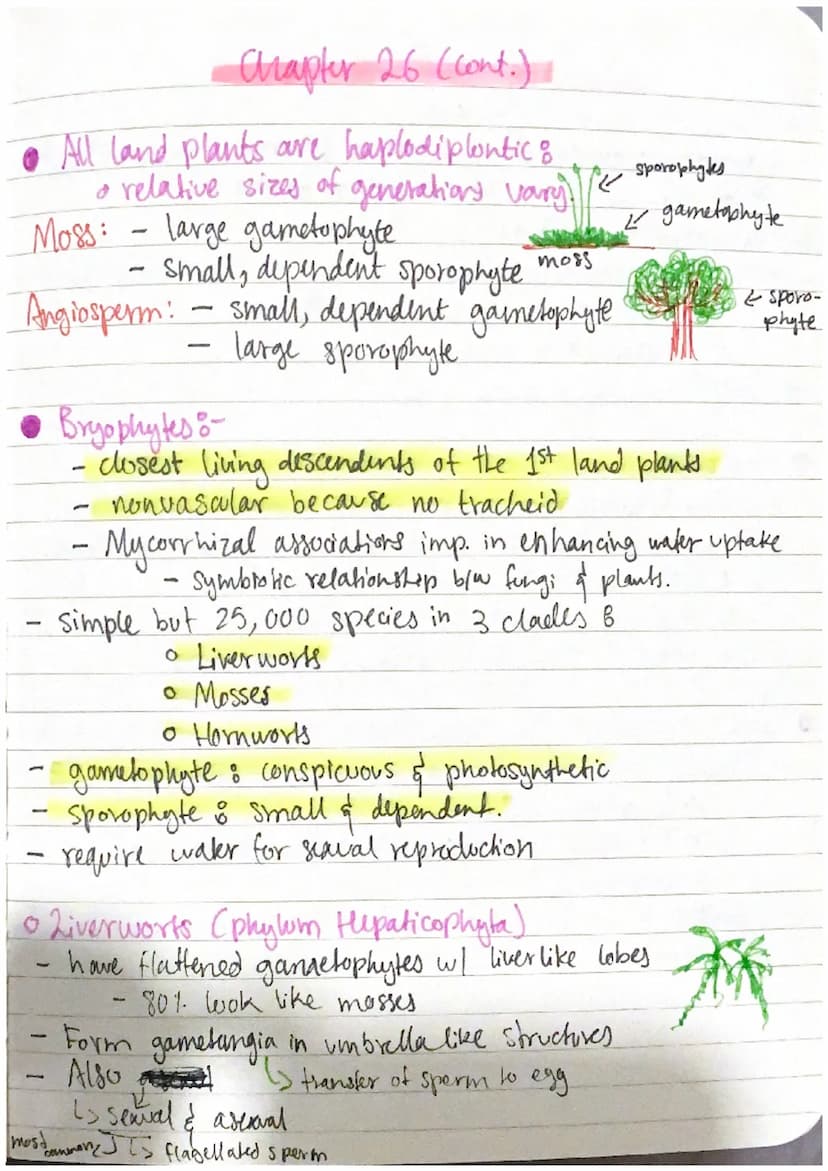 Chapter 26 (cont.)
All land plants are haplodiplontic:
relative sizes of generations vary
sporophytes
gametophyte
Moss: - large gametophyte
- small, dependent sporophyte
moss
Angiosperm: - small, dependent gametophyte
sporo-
phyte
- large sporophyte
Bryophytes:-
- closest living descendents of the 1st land plants
- nonvascular because no tracheid
- Mycorrhizal associations imp. in enhancing water uptake
- symbiotic relationship b/w fungi & plants.
- simple but 25,000 species in 3 clades:
Liverworts
Mosses
Hornworts
- gametophyte: conspicuous & photosynthetic
- sporophyte: small & dependent.
- require water for sexual reproduction
Liverworts (phylum Hepaticophyta)
- have flattened gamaetophytes w/ liverlike lobes
- 80% look like mosses
- Form gametangia in umbrella like structures
- Also
transfer of sperm to egg
sexual & asexual
most common
flagellated sperm